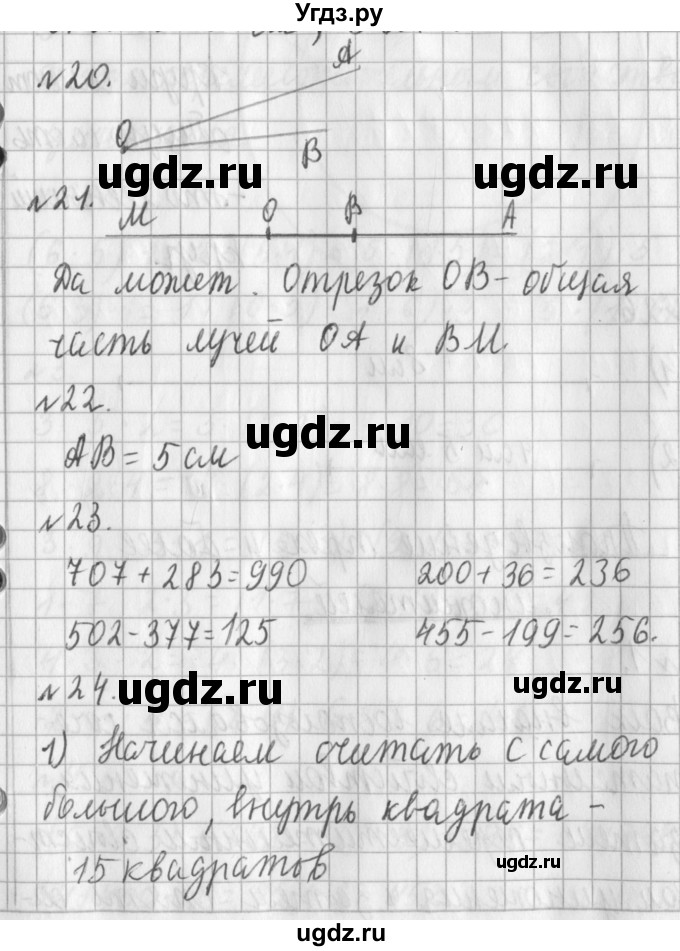 Угдз.ру
№20.
A
O
B
ugdz.ru ugdz.ru
№21.
M O B A
Да может. Отрезок OB - общая
часть лучей OA и BM
№22.
ugdz.ru
AB = 5 см
№23.
707 + 283 = 990 200 + 36 = 236
502 - 377 = 125 455 - 199 = 256.
№24.
ugdz.ru ugdz.ru
1) Начинаем считать с самого
большого, внутрь квадрата -
15 квадратов
ugdz.ru
ugdz.ru